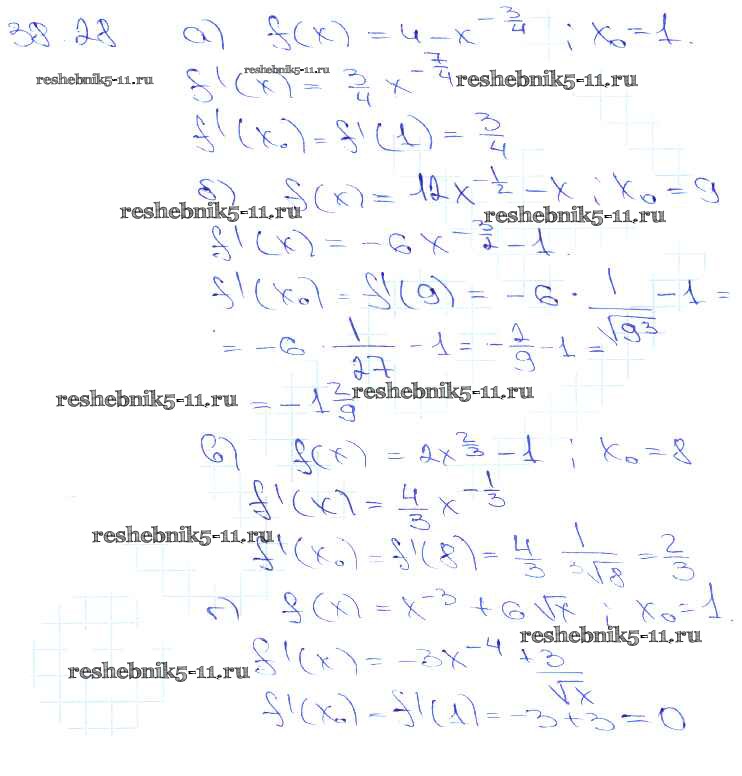 38.28 а) f(x) = 4 - x^{-3/4} ; x₀ = 1.
reshebnik5-11.ru
reshebnik5-11.ru
f'(x) = 3/4 x^{-7/4}
reshebnik5-11.ru
f'(x₀) = f'(1) = 3/4
б) f(x) = 12x^{-1/2} - x ; x₀ = 9
reshebnik5-11.ru
reshebnik5-11.ru
f'(x) = -6x^{-3/2} - 1.
f'(x₀) = f'(9) = -6 · 1/√9³ - 1 =
= -6 · 1/27 - 1 = -2/9 - 1 =
reshebnik5-11.ru
reshebnik5-11.ru
= -1 2/9
в) f(x) = 2x^{2/3} - 1 ; x₀ = 8
f'(x) = 4/3 x^{-1/3}
reshebnik5-11.ru
f'(x₀) = f'(8) = 4/3 1/³√8 = 2/3
г) f(x) = x^{-3} + 6√x ; x₀ = 1.
reshebnik5-11.ru
f'(x) = -3x^{-4} + 3/√x
reshebnik5-11.ru
f'(x₀) = f'(1) = -3 + 3 = 0